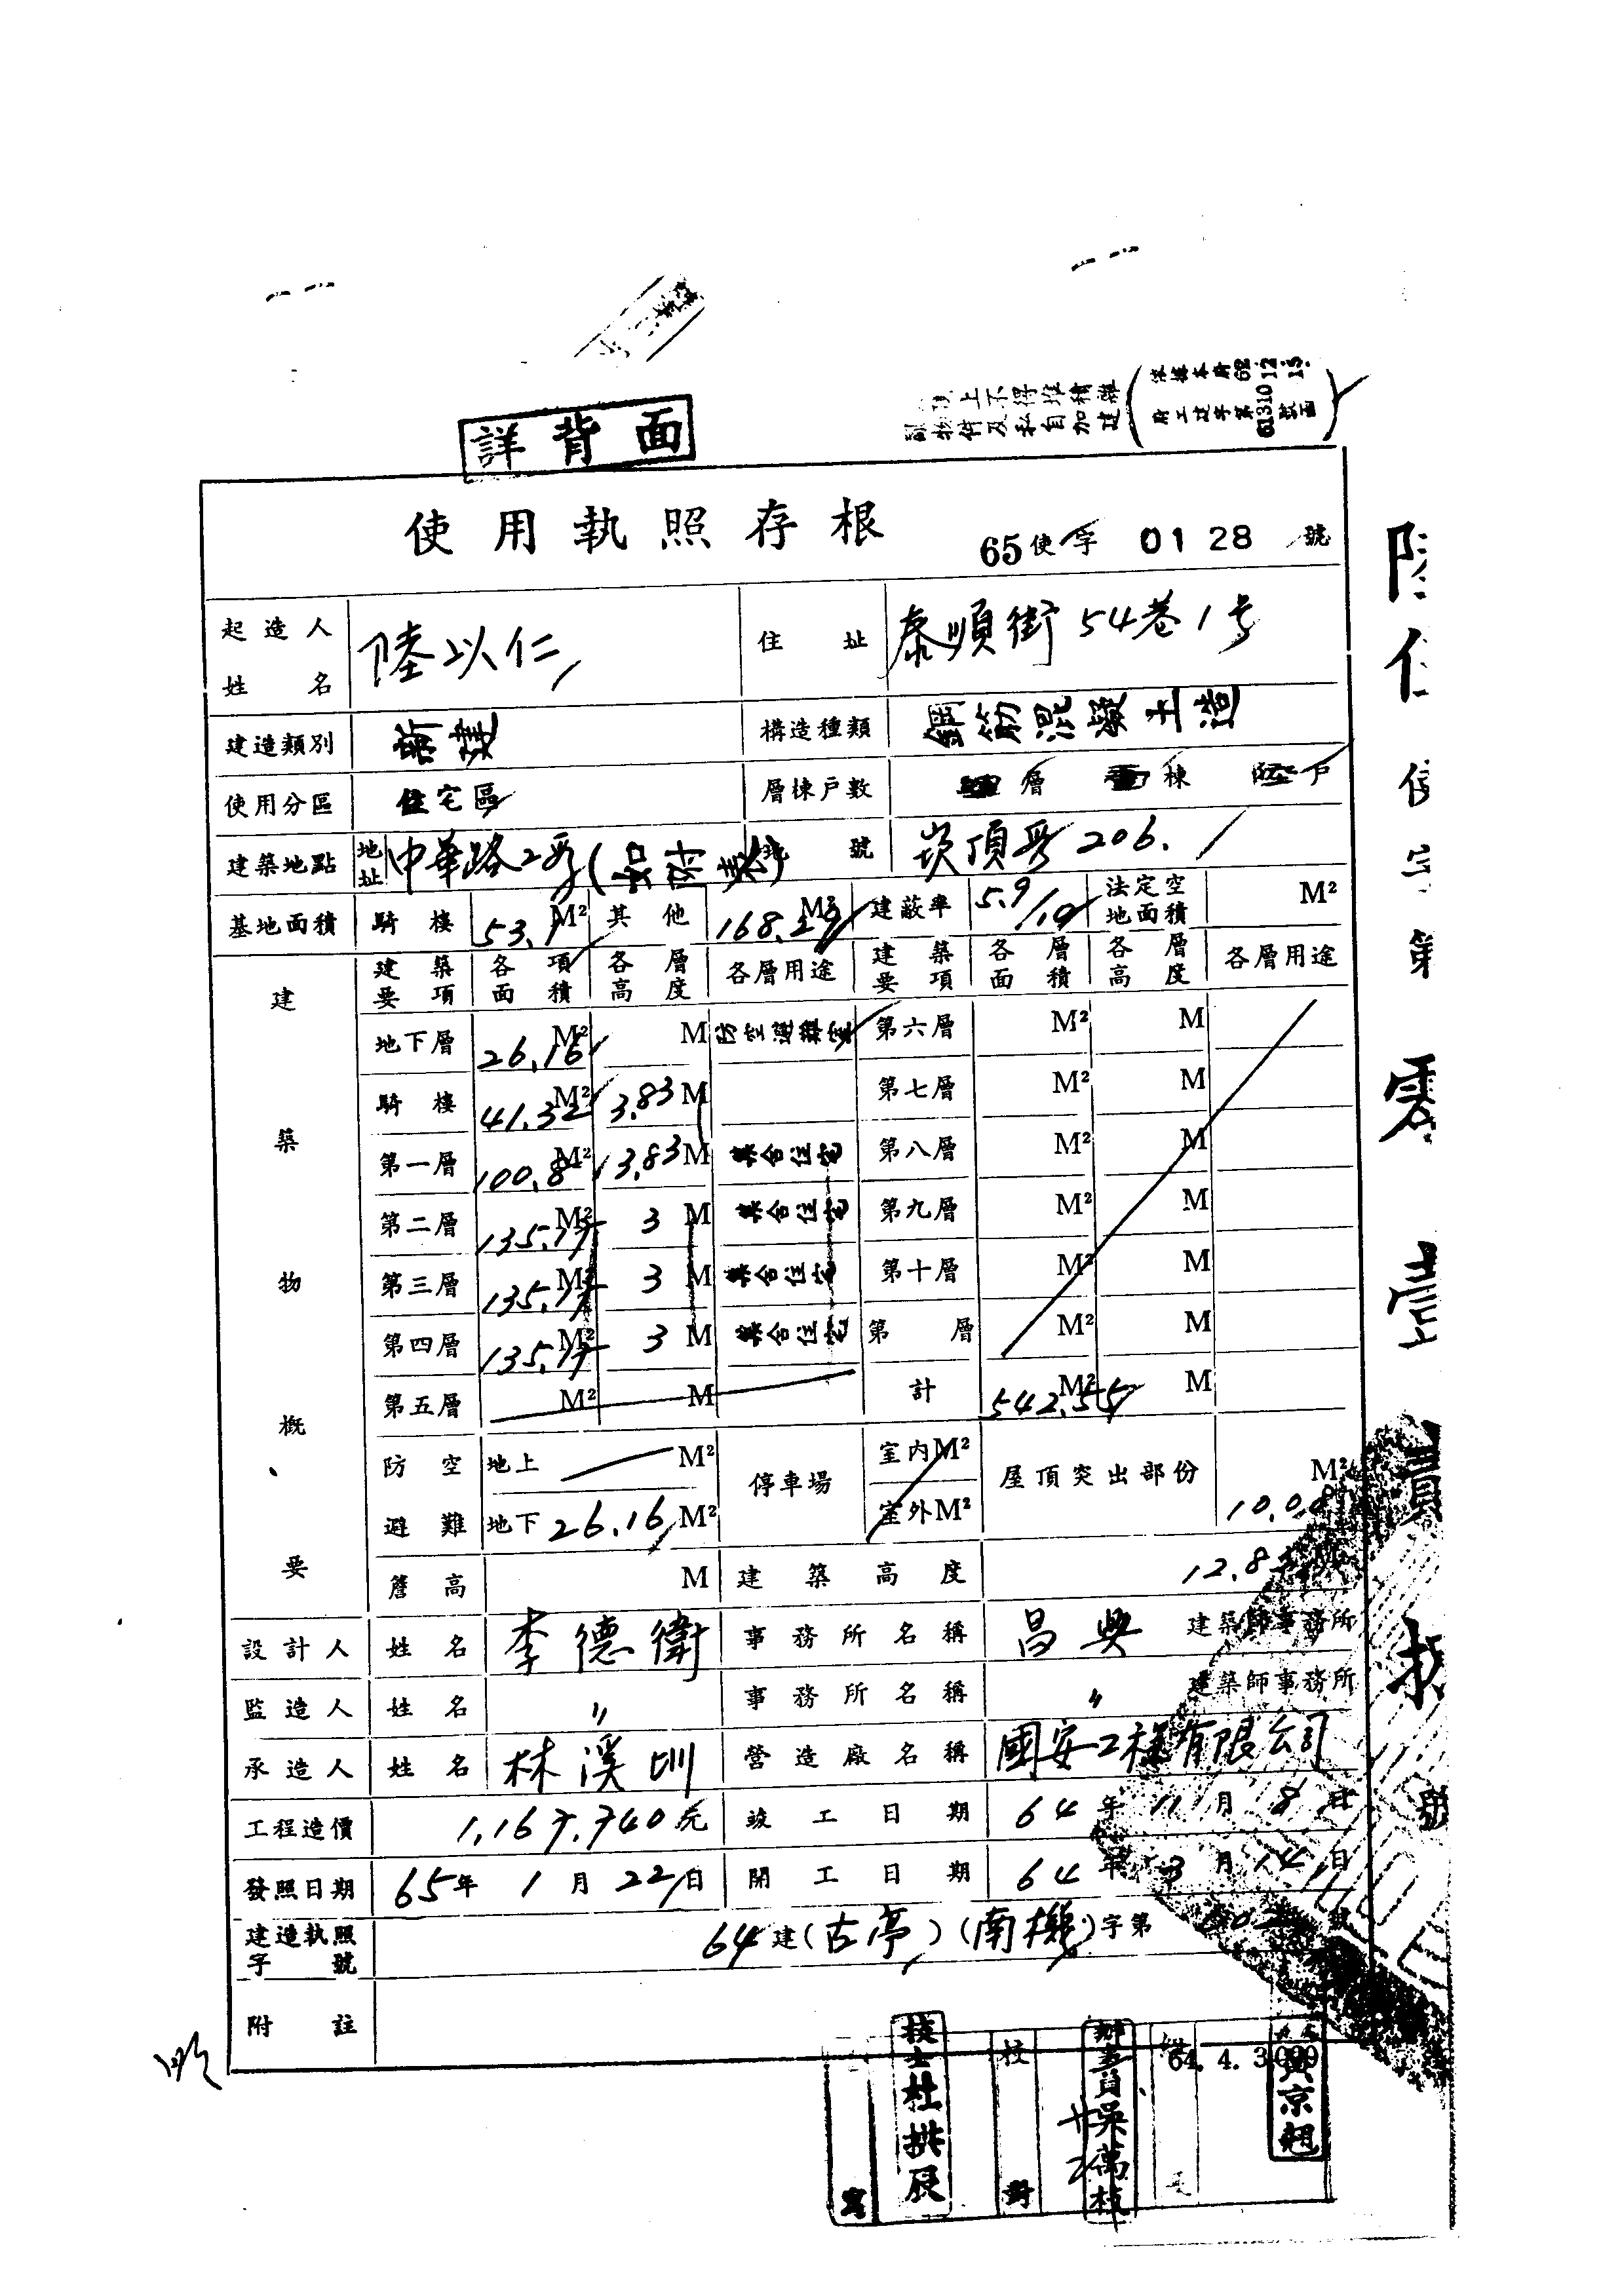 詳背面
上不得堆積雜
物件及私自加建
使用執照存根 65使字 0128 號
起造人姓名 陸以仁 住址 泰順街54巷1号
建造類別 新建 構造種類 鋼筋混凝土造
使用分區 住宅區 層棟戶數 層 棟 陸戶
建築地點 地址 中華路2段( 地號 崁頂段206.
基地面積 騎樓 53.1 M² 其他 168.29 M² 建蔽率 5.9/10 法定空地面積 M²
建築物概要 建築要項 各項面積 各層高度 各層用途 建築要項 各層面積 各層高度 各層用途
地下層 26.16 M² M 防空避難室 第六層 M² M
騎樓 41.32 M² 3.83 M 第七層 M² M
第一層 100.8 M² 3.83 M 集合住宅 第八層 M² M
第二層 135. M² 3 M 集合住宅 第九層 M² M
第三層 135. M² 3 M 集合住宅 第十層 M² M
第四層 135. M² 3 M 集合住宅 第 層 M² M
第五層 M² M 計 542.55 M² M
防空避難 地上 M² 停車場 室內M² 屋頂突出部份 M²
地下 26.16 M² 室外M² 10.0
簷高 M 建築高度 12.8
設計人 姓名 李德衛 事務所名稱 昌興 建築師事務所
監造人 姓名 〃 事務所名稱 〃 建築師事務所
承造人 姓名 林溪圳 營造廠名稱 國安工程有限公司
工程造價 1,167,740元 竣工日期 64年11月8日
發照日期 65年1月22日 開工日期 64年3月14日
建造執照字號 64建(古亭)(南機)字第 號
附註
64.4.3,000
技士杜拱辰
校對
辦事員吳萬枝